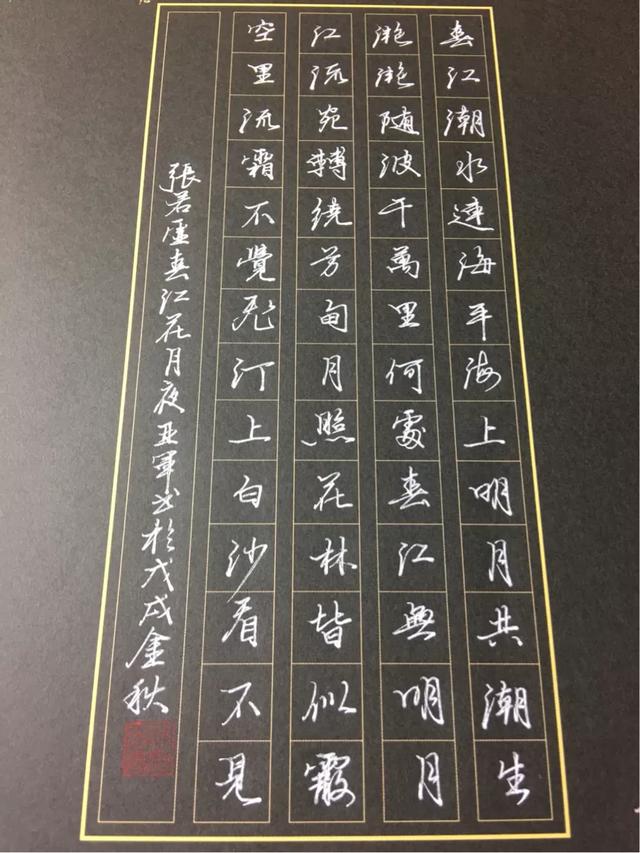 春江潮水連海平海上明月共潮生
滟滟随波千萬里何處春江無明月
江流宛轉繞芳甸月照花林皆似霰
空里流霜不覺飛汀上白沙看不見
張若虛春江花月夜亚軍书於戊戌金秋